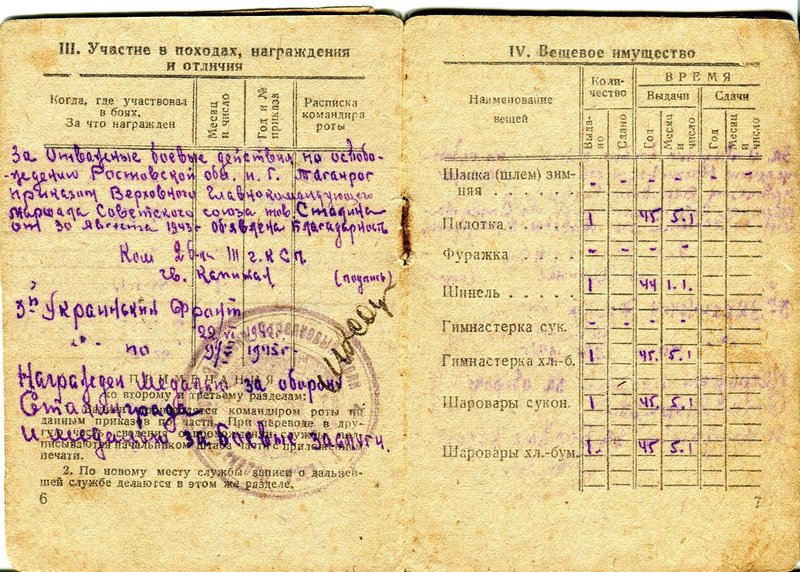 III. Участие в походах, награждения
и отличия
Когда, где участвовал
в боях.
За что награжден
Месяц
и число
Год и №
приказа
Расписка
командира
роты
За Отважные боевые действия по освобо-
ждению Ростовской обл. и Г. Таганрог
приказом Верховного Главнокомандующего
маршала Советского союза тов. Сталина
от 30 Августа 1943г. объявлена Благодарность
Ком
г.К С П
гв. Капитал
(подпись)
3й Украинский Фронт
22
по 9/V 1945г.
Награжден Медалью за оборону
Сталинграда
и медалью за Боевые заслуги.
ко второму и третьему разделам:
командиром роты по
данным приказов части. При переводе в дру-
гую
писываются начальником штаба части с приложением
печати.
2. По новому месту службы записи о дальней-
шей службе делаются в этом же разделе.
6
IV. Вещевое имущество
Наименование
вещей
Коли-
чество
ВРЕМЯ
Выдачи
Сдачи
Выда-
но
Сдано
Год
Месяц
и
число
Год
Месяц
и число
Шапка (шлем) зим-
няя . . . . . . - - - -
Пилотка . . . . . 1 45 5.1
Фуражка . . . . . - - - -
Шинель . . . . . . 1 44 1.1.
Гимнастерка сук. - - - -
Гимнастерка хл.-б. 1 45 5.1
Шаровары сукон. . 1 45 5.1
Шаровары хл.-бум. 1. 45 5.1
7